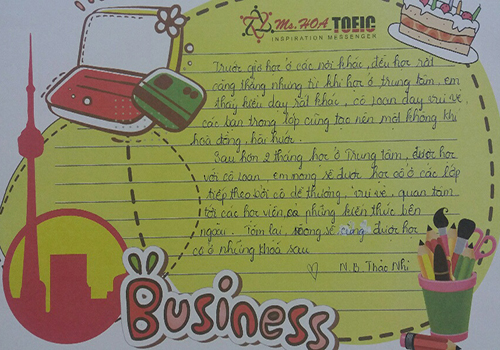 Ms. HOA TOEIC
INSPIRATION MESSENGER
Trước giờ học ở các nơi khác, đều học rất
căng thẳng nhưng từ khi học ở trung tâm, em
thấy kiểu dạy rất khác, cô Loan dạy vui vẻ,
các bạn trong lớp cũng tạo nên một không khí
hoà đồng, hài hước.
Sau hơn 2 tháng học ở Trung tâm, được học
với cô Loan, em mong sẽ được học cô ở các lớp
tiếp theo bởi cô dễ thương, vui vẻ, quan tâm
tới các học viên, cả những kiến thức bên
ngoài. Tóm lại, mong sẽ cũng được học
cô ở những khoá sau
N.B. Thảo Nhi
BUSINESS